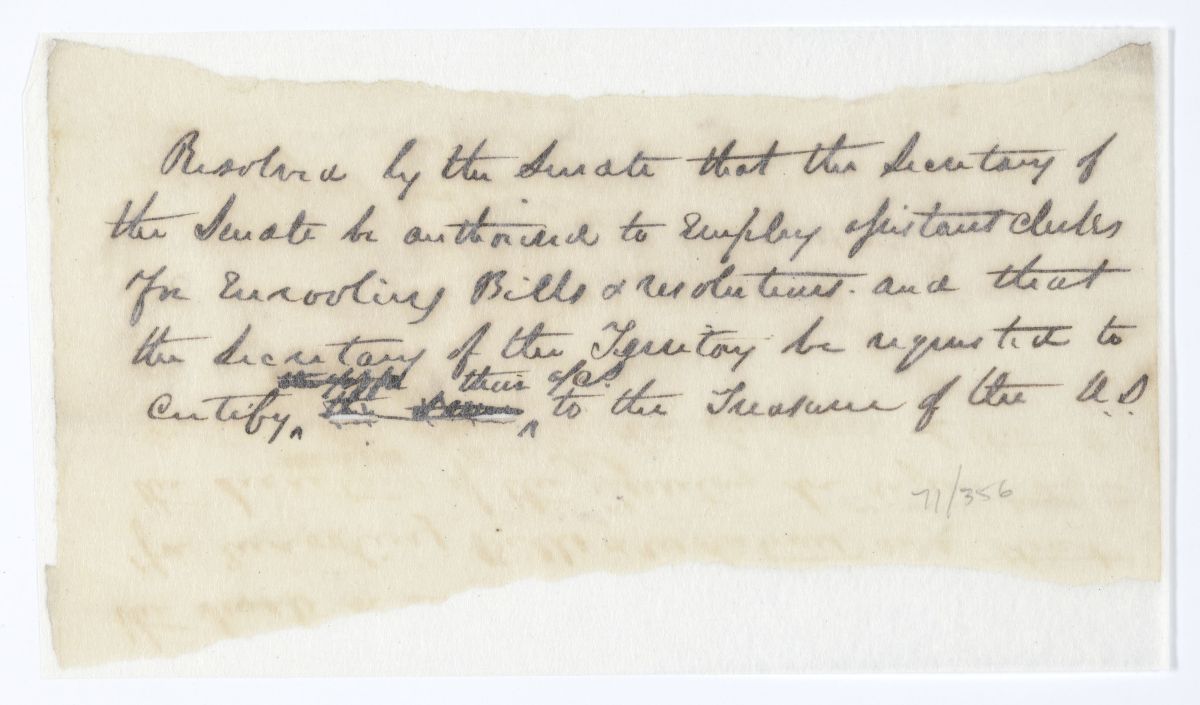 Resolved by the Senate that the Secretary of
the Senate be authorised to Employ assistant clerks
for Enrooling Bills & resolutions. and that
the Secretary of the Territory be requested to
their a/cs
certify the same to the Treasurer of the U.S.
71/356